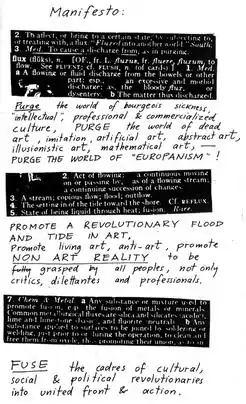 Manifesto:
2. To affect, or bring to a certain state, by subjecting to,
or treating with, a flux. "Fluxed into another world." South.
3. Med. To cause a discharge from, as in purging.
flux (flŭks), n. [OF., fr. L. fluxus, fr. fluere, fluxum, to
flow. See FLUENT; cf. FLUSH, n. (of cards).] 1. Med.
a A flowing or fluid discharge from the bowels or other
part; esp., an excessive and morbid
discharge; as, the bloody flux, or
dysentery. b The matter thus discharged.
Purge the world of bourgeois sickness,
"intellectual", professional & commercialized
culture, PURGE the world of dead
art, imitation, artificial art, abstract art,
illusionistic art, mathematical art, —
PURGE THE WORLD OF "EUROPANISM"!
2. Act of flowing: a continuous moving
on or passing by, as of a flowing stream;
a continuing succession of changes.
3. A stream; copious flow; flood; outflow.
4. The setting in of the tide toward the shore. Cf. REFLUX.
5. State of being liquid through heat; fusion. Rare.
PROMOTE A REVOLUTIONARY FLOOD
AND TIDE IN ART,
Promote living art, anti-art, promote
NON ART REALITY to be
grasped by all peoples, not only
critics, dilettantes and professionals.
7. Chem. & Metal. a Any substance or mixture used to
promote fusion, esp. the fusion of metals or minerals.
Common metallurgical fluxes are silica and silicates (acidic),
lime and limestone (basic), and fluorite (neutral). b Any
substance applied to surfaces to be joined by soldering or
welding, just prior to or during the operation, to clean and
free them from oxide, thus promoting their union, as rosin.
FUSE the cadres of cultural,
social & political revolutionaries
into united front & action.